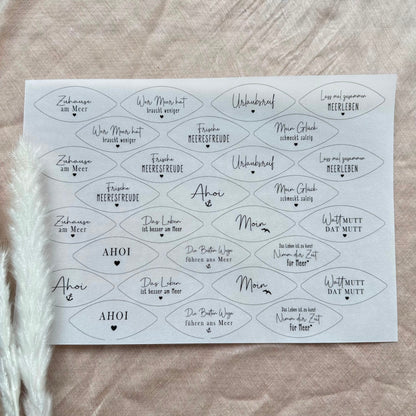 Zuhause
am Meer
Wer Meer hat
braucht weniger
Urlaubsreif
Lass mal zusammen
MEERLEBEN
Wer Meer hat
braucht weniger
Frische
MEERESFREUDE
Mein Glück
schmeckt salzig
Zuhause
am Meer
Frische
MEERESFREUDE
Urlaubsreif
Lass mal zusammen
MEERLEBEN
Frische
MEERESFREUDE
Ahoi
Mein Glück
schmeckt salzig
Zuhause
am Meer
Das Leben
ist besser am Meer
Moin
Watt MUTT
DAT MUTT
AHOI
Die Besten Wege
führen ans Meer
Das Leben ist so kurz
Nimm dir Zeit
für Meer
Ahoi
Das Leben
ist besser am Meer
Moin
Watt MUTT
DAT MUTT
AHOI
Die Besten Wege
führen ans Meer
Das Leben ist so kurz
Nimm dir Zeit
für Meer